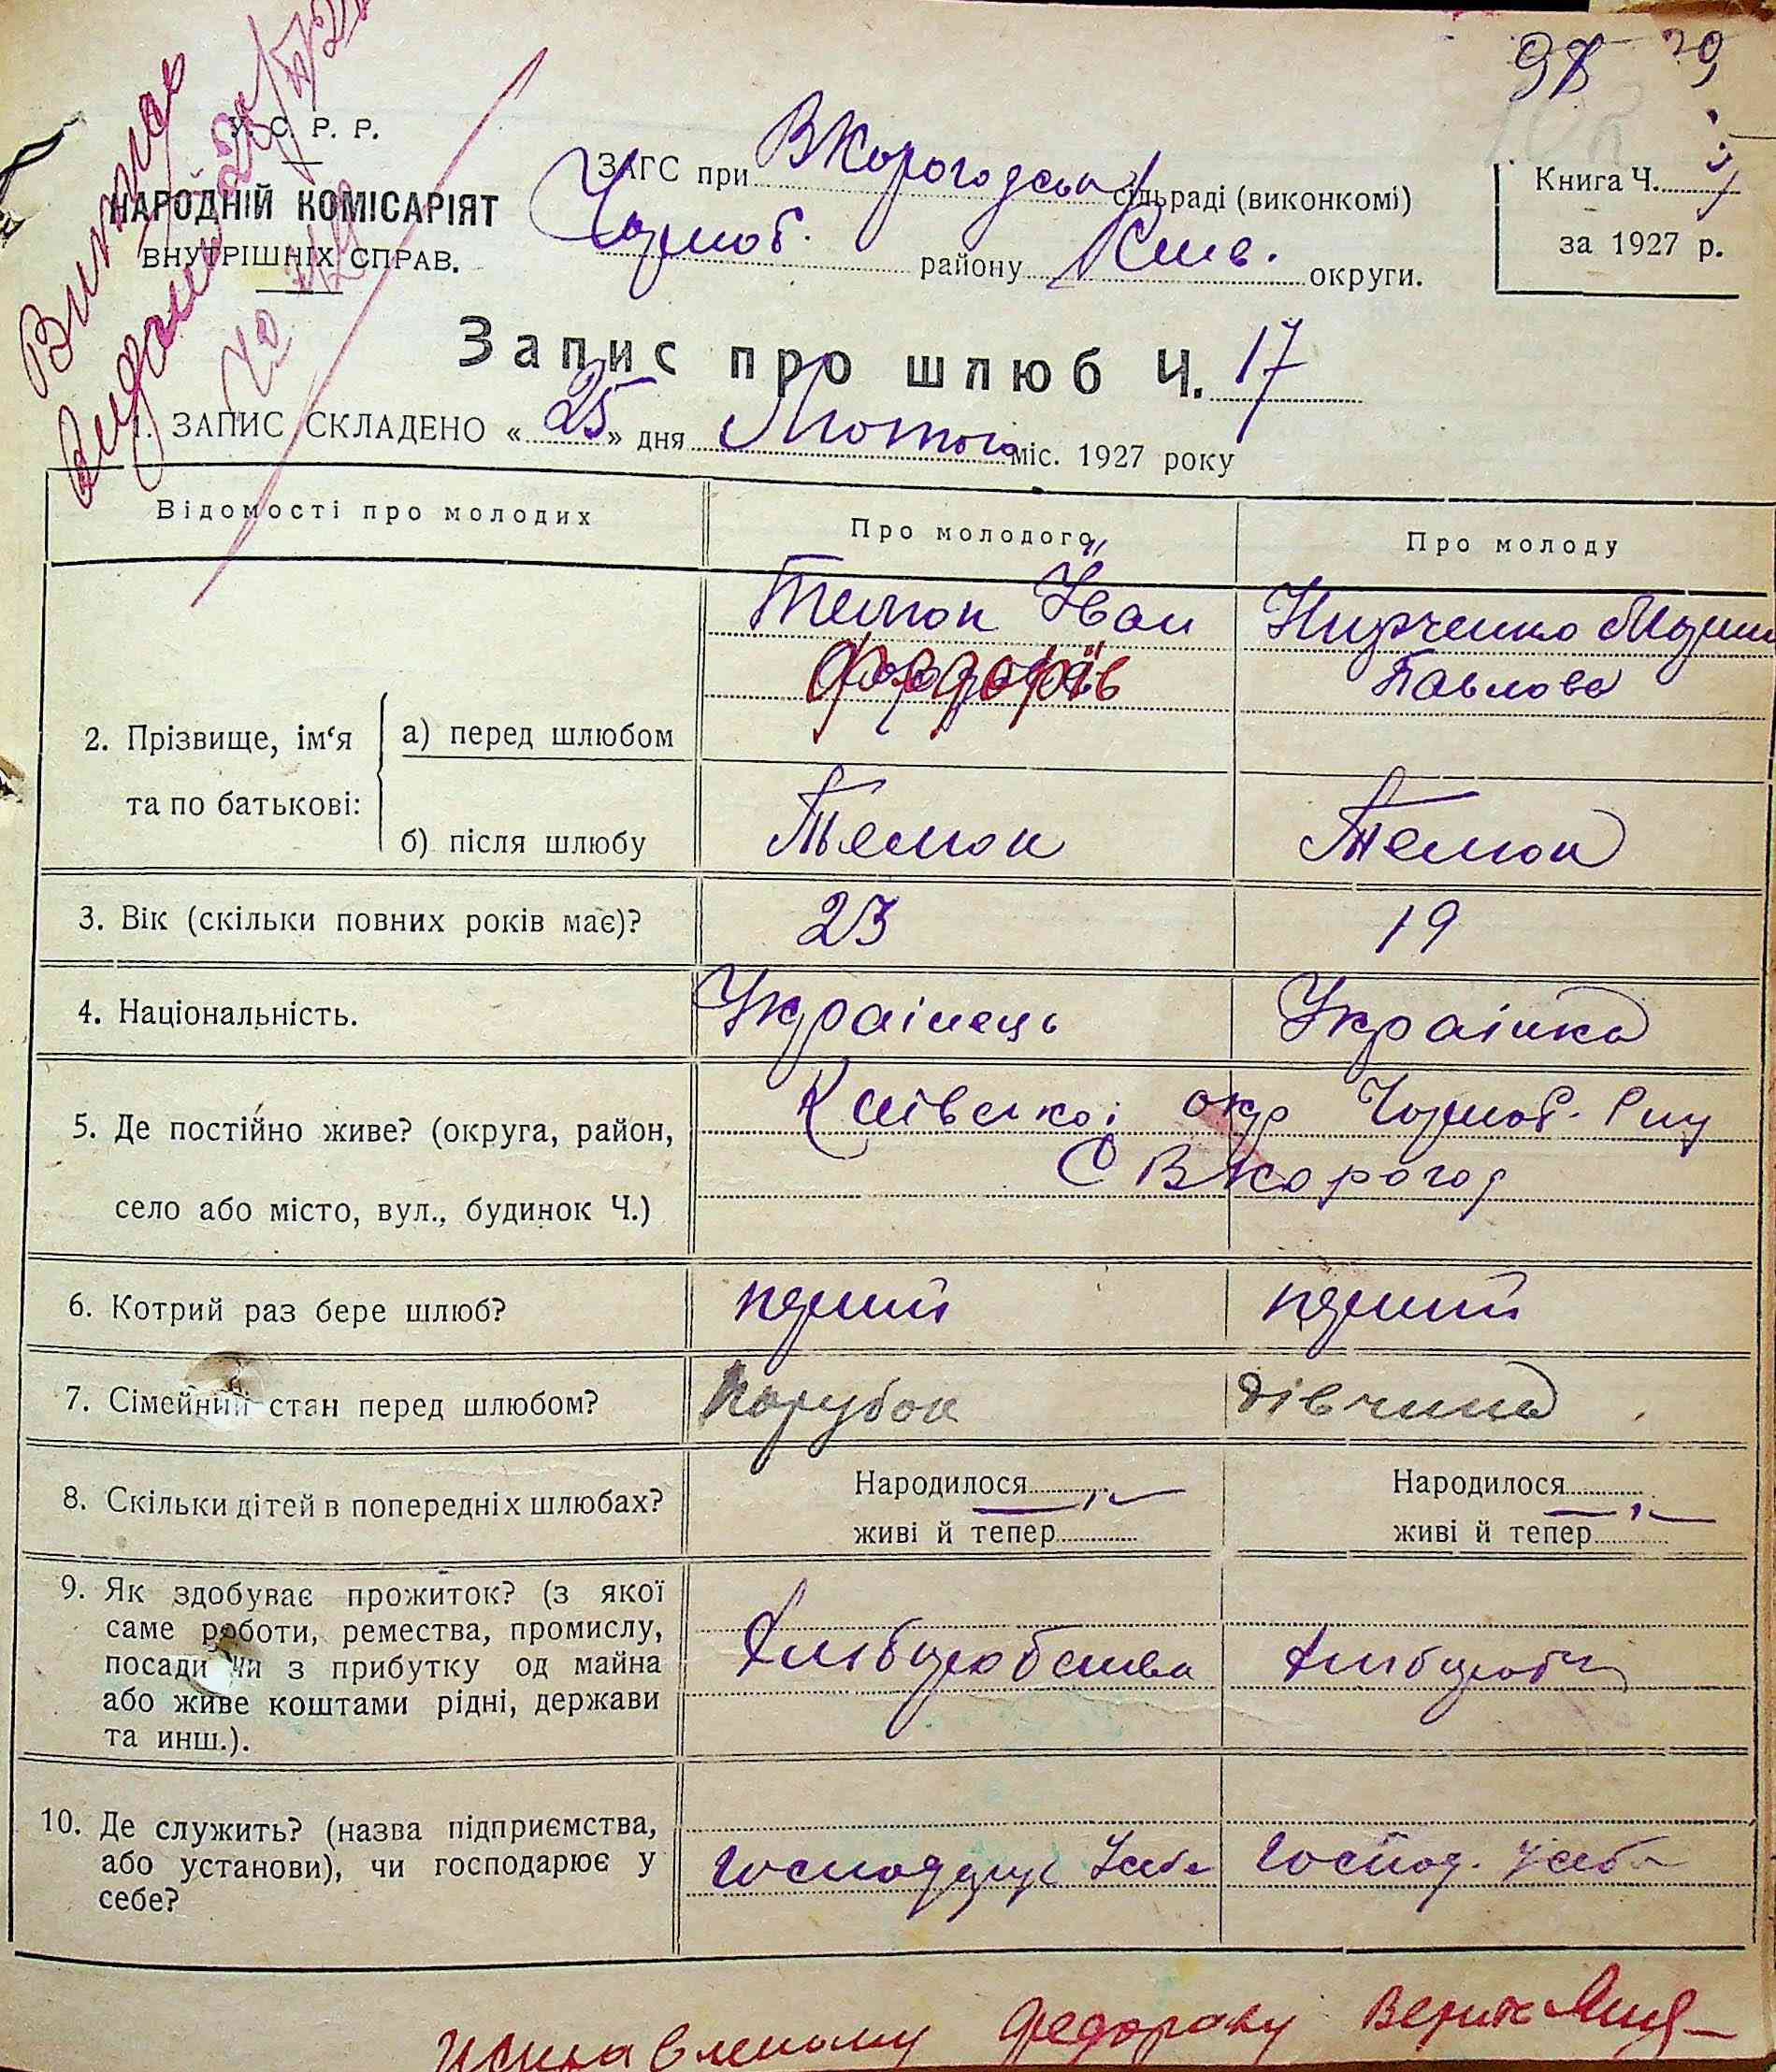 98
У. С. Р. Р.
НАРОДНІЙ КОМІСАРІЯТ
ВНУТРІШНІХ СПРАВ.
ЗАГС при ВКорогодськ сільраді (виконкомі)
Чорноб. району Киев. округи.
Книга Ч.
за 1927 р.
Запис про шлюб Ч. 17
1. ЗАПИС СКЛАДЕНО « 25 » дня Лютого міс. 1927 року
Відомості про молодих
Про молодого
Про молоду
2. Прізвище, ім‘я та по батькові:
а) перед шлюбом
Темон Іван
Федорів
Марія
Павлова
б) після шлюбу
Темон
Темон
3. Вік (скільки повних років має)?
23
19
4. Національність.
Украінець
Украінка
5. Де постійно живе? (округа, район,
село або місто, вул., будинок Ч.)
Киівськоі окр Чорноб. Рну
С ВКорогод
6. Котрий раз бере шлюб?
перший
перший
7. Сімейний стан перед шлюбом?
Парубок
дівчина
8. Скільки дітей в попередніх шлюбах?
Народилося
живі й тепер
Народилося
живі й тепер
9. Як здобуває прожиток? (з якої
саме роботи, ремества, промислу,
посади чи з прибутку од майна
або живе коштами рідні, держави
та инш.).
10. Де служить? (назва підприємства,
або установи), чи господарює у
себе?
Господарує У себе
Господ. У себе
Исправленому Федорову Верить